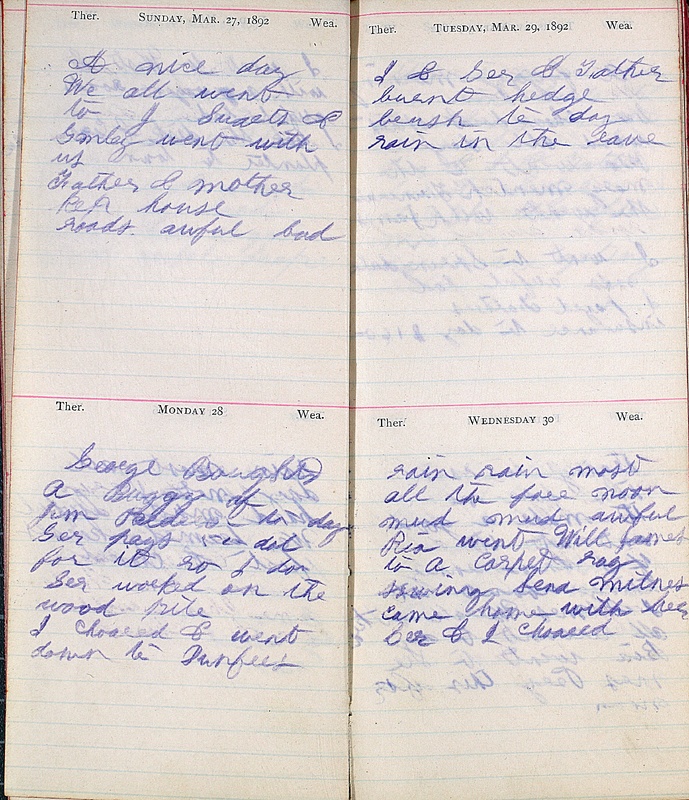 Ther. SUNDAY, MAR. 27, 1892 Wea.
A nice day
We all went
to J Sweets &
Emley went with
us
Father & mother
house
roads awful bad
Ther. MONDAY 28 Wea.
George Bought
A Buggy of
Jim to day
Ger pays dol
for it so I do
Ger worked on the
wood pile
I choared & went
down to Dunfees
Ther. TUESDAY, MAR. 29, 1892 Wea.
I & Ger & Father
burnt hedge
brush to day
rain in the eave
Ther. WEDNESDAY 30 Wea.
rain rain most
all the fore noon
mud mud awful
Ria went Will James
to A Carpet rag
sewing Sena Milnes
came home with her
Ger & I choared